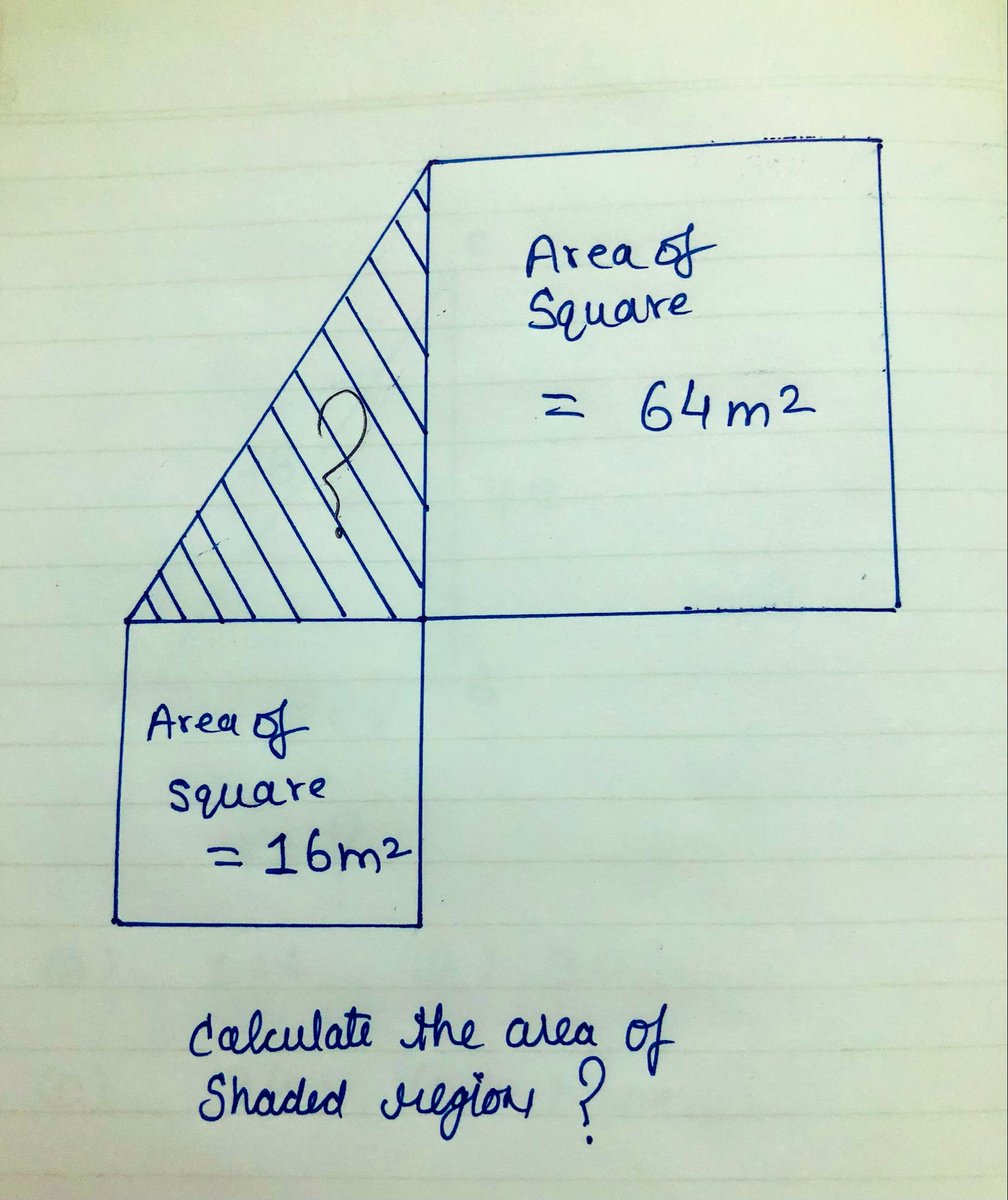 Area of
Square
= 64m²
?
Area of
square
= 16m²
Calculate the area of
Shaded region ?